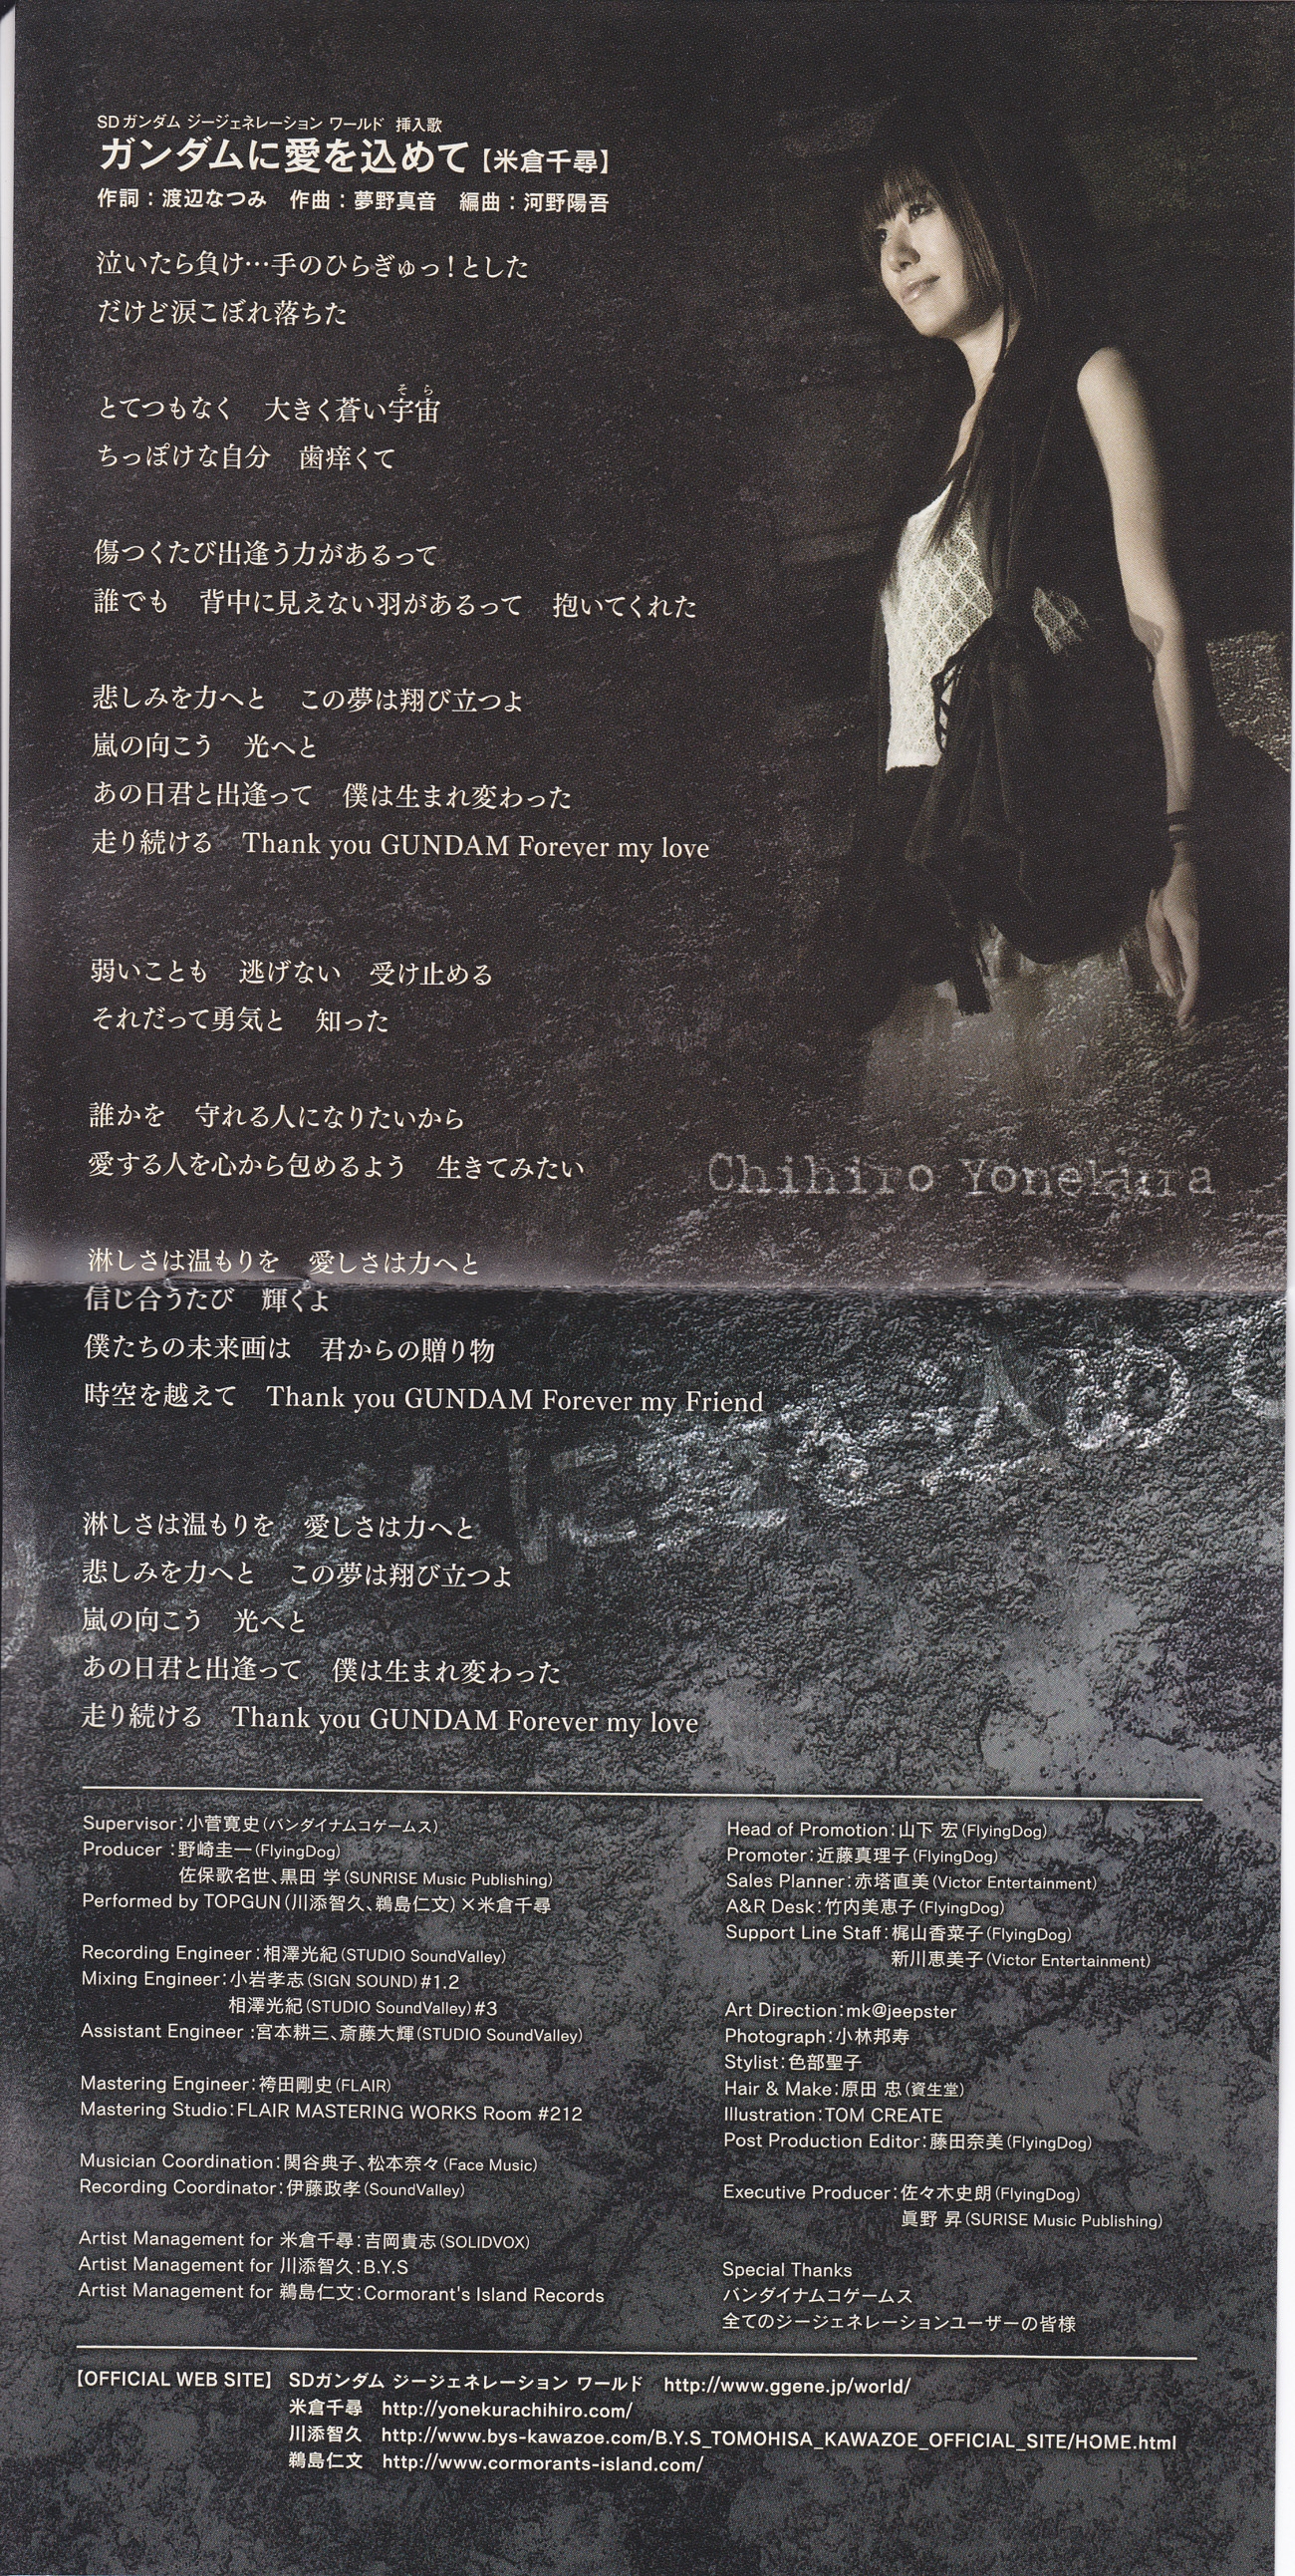 SDガンダム ジージェネレーション ワールド 挿入歌
ガンダムに愛を込めて【米倉千尋】
作詞：渡辺なつみ 作曲：夢野真音 編曲：河野陽吾
泣いたら負け…手のひらぎゅっ！とした
だけど涙こぼれ落ちた
そら
とてつもなく 大きく蒼い宇宙
ちっぽけな自分 歯痒くて
傷つくたび出逢う力があるって
誰でも 背中に見えない羽があるって 抱いてくれた
悲しみを力へと この夢は翔び立つよ
嵐の向こう 光へと
あの日君と出逢って 僕は生まれ変わった
走り続ける Thank you GUNDAM Forever my love
弱いことも 逃げない 受け止める
それだって勇気と 知った
誰かを 守れる人になりたいから
愛する人を心から包めるよう 生きてみたい
Chihiro Yonekura
淋しさは温もりを 愛しさは力へと
信じ合うたび 輝くよ
僕たちの未来画は 君からの贈り物
時空を越えて Thank you GUNDAM Forever my Friend
淋しさは温もりを 愛しさは力へと
悲しみを力へと この夢は翔び立つよ
嵐の向こう 光へと
あの日君と出逢って 僕は生まれ変わった
走り続ける Thank you GUNDAM Forever my love
Supervisor：小菅寛史（バンダイナムコゲームス）
Producer：野崎圭一（FlyingDog）
佐保歌名世、黒田 学（SUNRISE Music Publishing）
Performed by TOPGUN（川添智久、鵜島仁文）×米倉千尋
Recording Engineer：相澤光紀（STUDIO SoundValley）
Mixing Engineer：小岩孝志（SIGN SOUND）#1.2
相澤光紀（STUDIO SoundValley）#3
Assistant Engineer：宮本耕三、斎藤大輝（STUDIO SoundValley）
Mastering Engineer：袴田剛史（FLAIR）
Mastering Studio：FLAIR MASTERING WORKS Room #212
Musician Coordination：関谷典子、松本奈々（Face Music）
Recording Coordinator：伊藤政孝（SoundValley）
Artist Management for 米倉千尋：吉岡貴志（SOLIDVOX）
Artist Management for 川添智久：B.Y.S
Artist Management for 鵜島仁文：Cormorant's Island Records
Head of Promotion：山下 宏（FlyingDog）
Promoter：近藤真理子（FlyingDog）
Sales Planner：赤塔直美（Victor Entertainment）
A&R Desk：竹内美恵子（FlyingDog）
Support Line Staff：梶山香菜子（FlyingDog）
新川恵美子（Victor Entertainment）
Art Direction：mk@jeepster
Photograph：小林邦寿
Stylist：色部聖子
Hair & Make：原田 忠（資生堂）
Illustration：TOM CREATE
Post Production Editor：藤田奈美（FlyingDog）
Executive Producer：佐々木史朗（FlyingDog）
眞野 昇（SURISE Music Publishing）
Special Thanks
バンダイナムコゲームス
全てのジージェネレーションユーザーの皆様
【OFFICIAL WEB SITE】 SDガンダム ジージェネレーション ワールド http://www.ggene.jp/world/
米倉千尋 http://yonekurachihiro.com/
川添智久 http://www.bys-kawazoe.com/B.Y.S_TOMOHISA_KAWAZOE_OFFICIAL_SITE/HOME.html
鵜島仁文 http://www.cormorants-island.com/